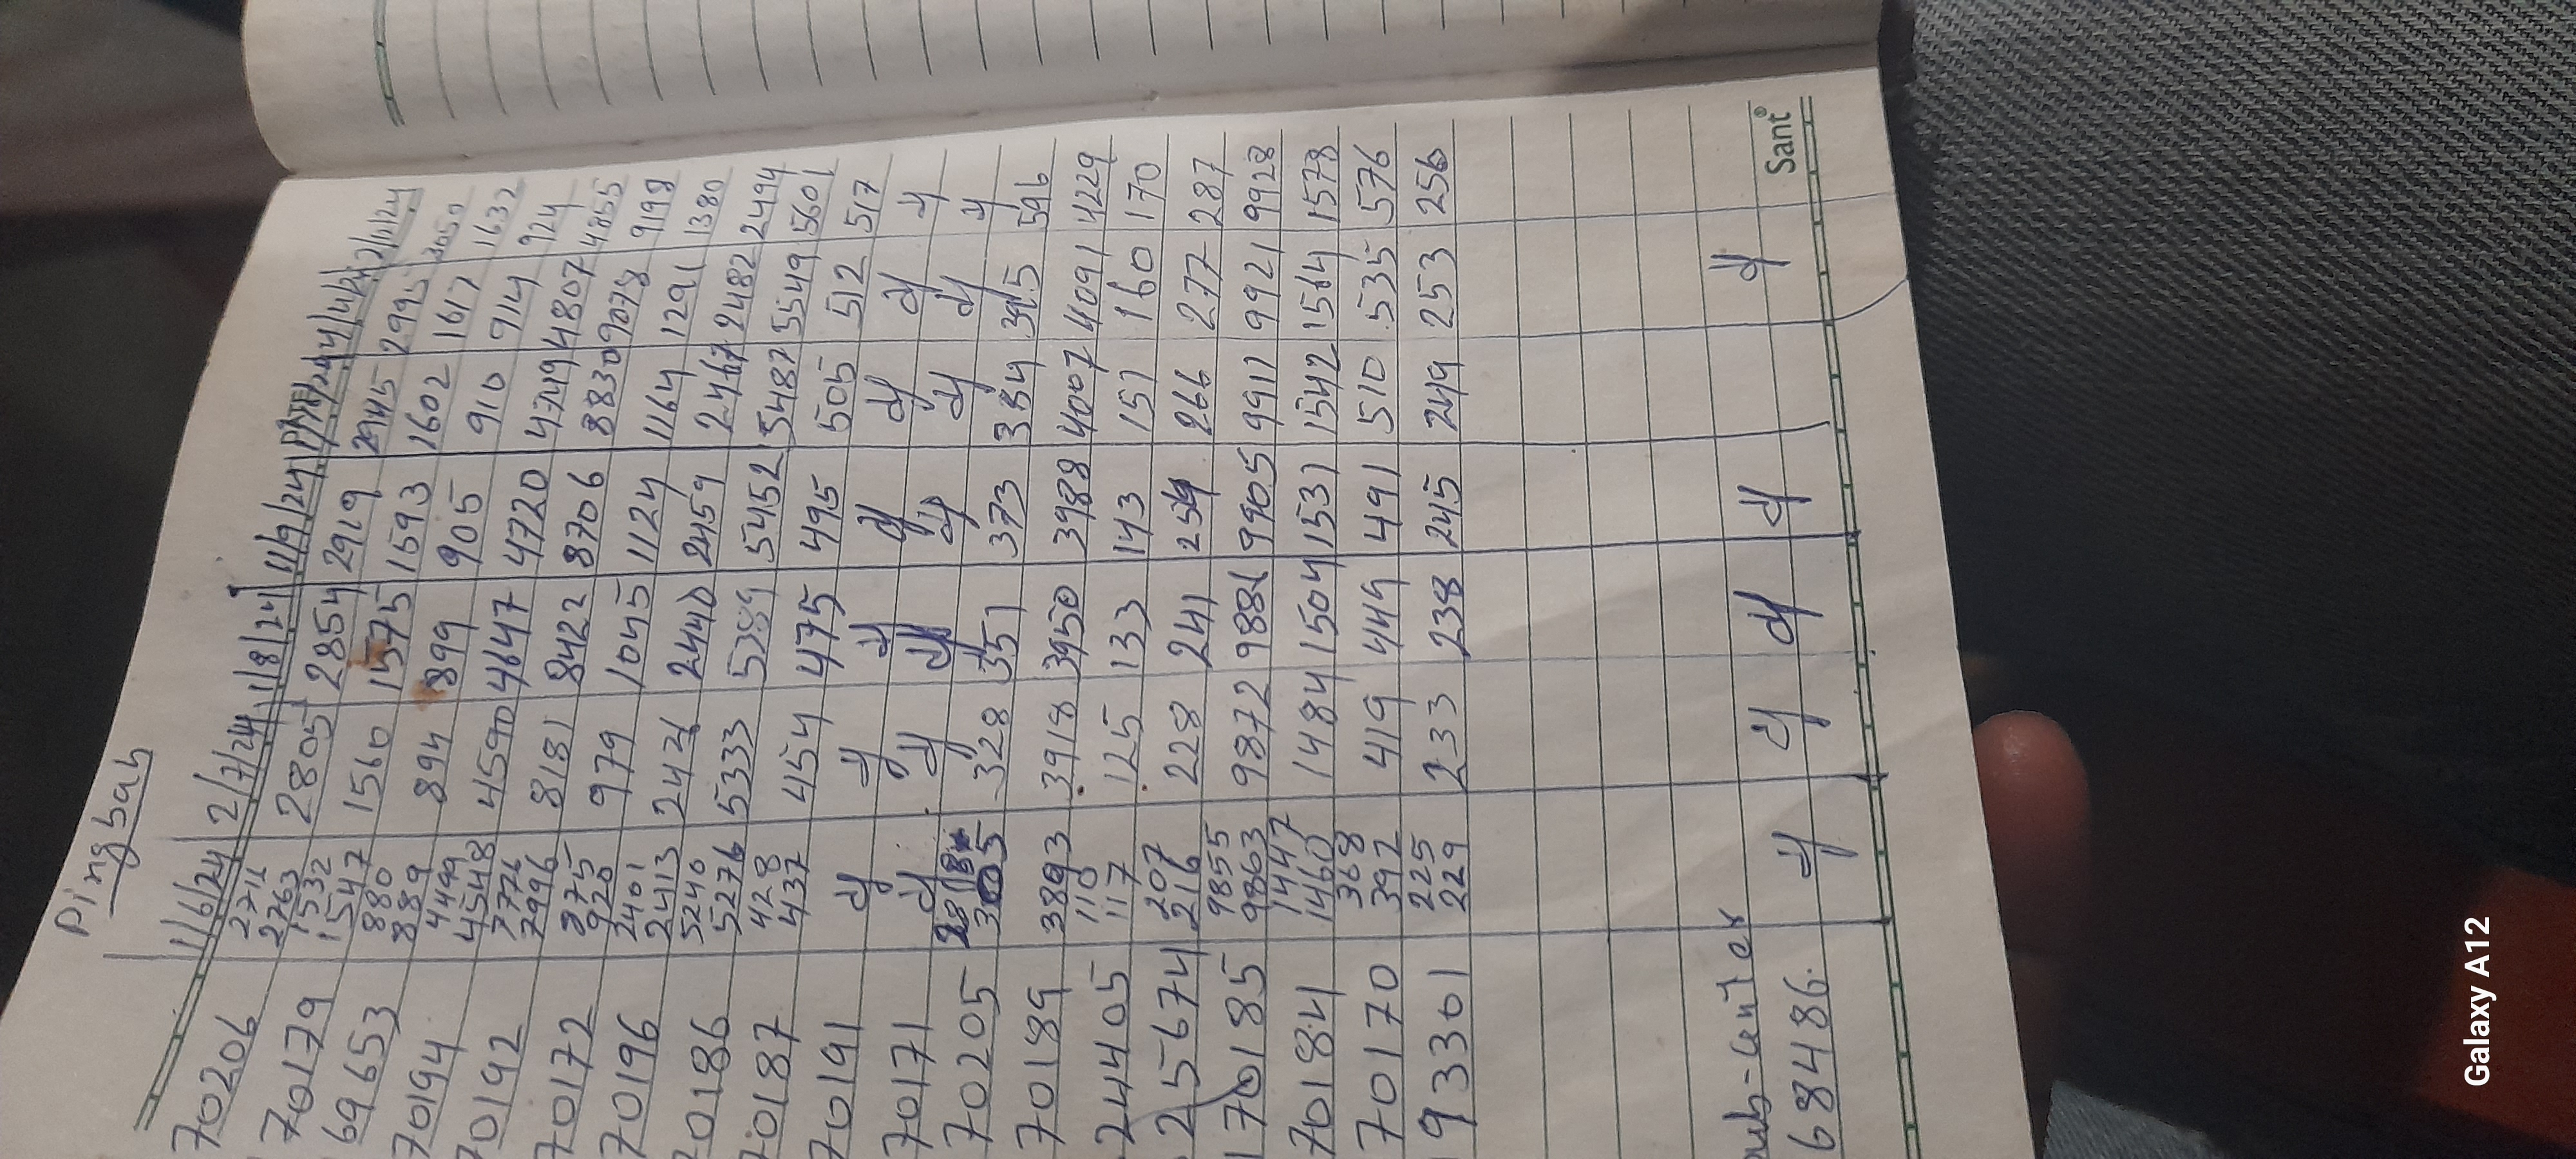 Pingbah
1/6/24 2/7/24 1/8/24 11/9/24
70206 2711 2763 2805 2854 2919 2945 2995 3050
70179 1532 1547 1560 1575 1593 1602 1617 1632
69653 880 889 894 899 905 910 914 924
70194 4490 4548 4590 4647 4720 4749 4807 4855
70192 7776 7996 8181 8422 8706 8830 9078 9198
70172 875 920 979 1045 1124 1164 1291 1380
70196 2401 2413 2426 2440 2459 2467 2482 2494
70186 5240 5276 5333 5389 5452 5487 5549 5601
70187 428 437 454 475 495 505 512 517
70191
70171
70205 305 328 351 373 384 395 596
70189 3893 3918 3950 3988 4007 4091 4229
244405 110 117 125 133 143 151 160 170
255674 207 216 228 241 254 266 277 287
170185 9855 9863 9872 9881 9905 9911 9921 9928
70184 1447 1460 1484 1504 1531 1542 1564 1578
70170 368 392 419 449 491 510 535 576
93301 225 229 233 238 245 249 253 256
sub-Center
68486.
Sant®
Galaxy A12